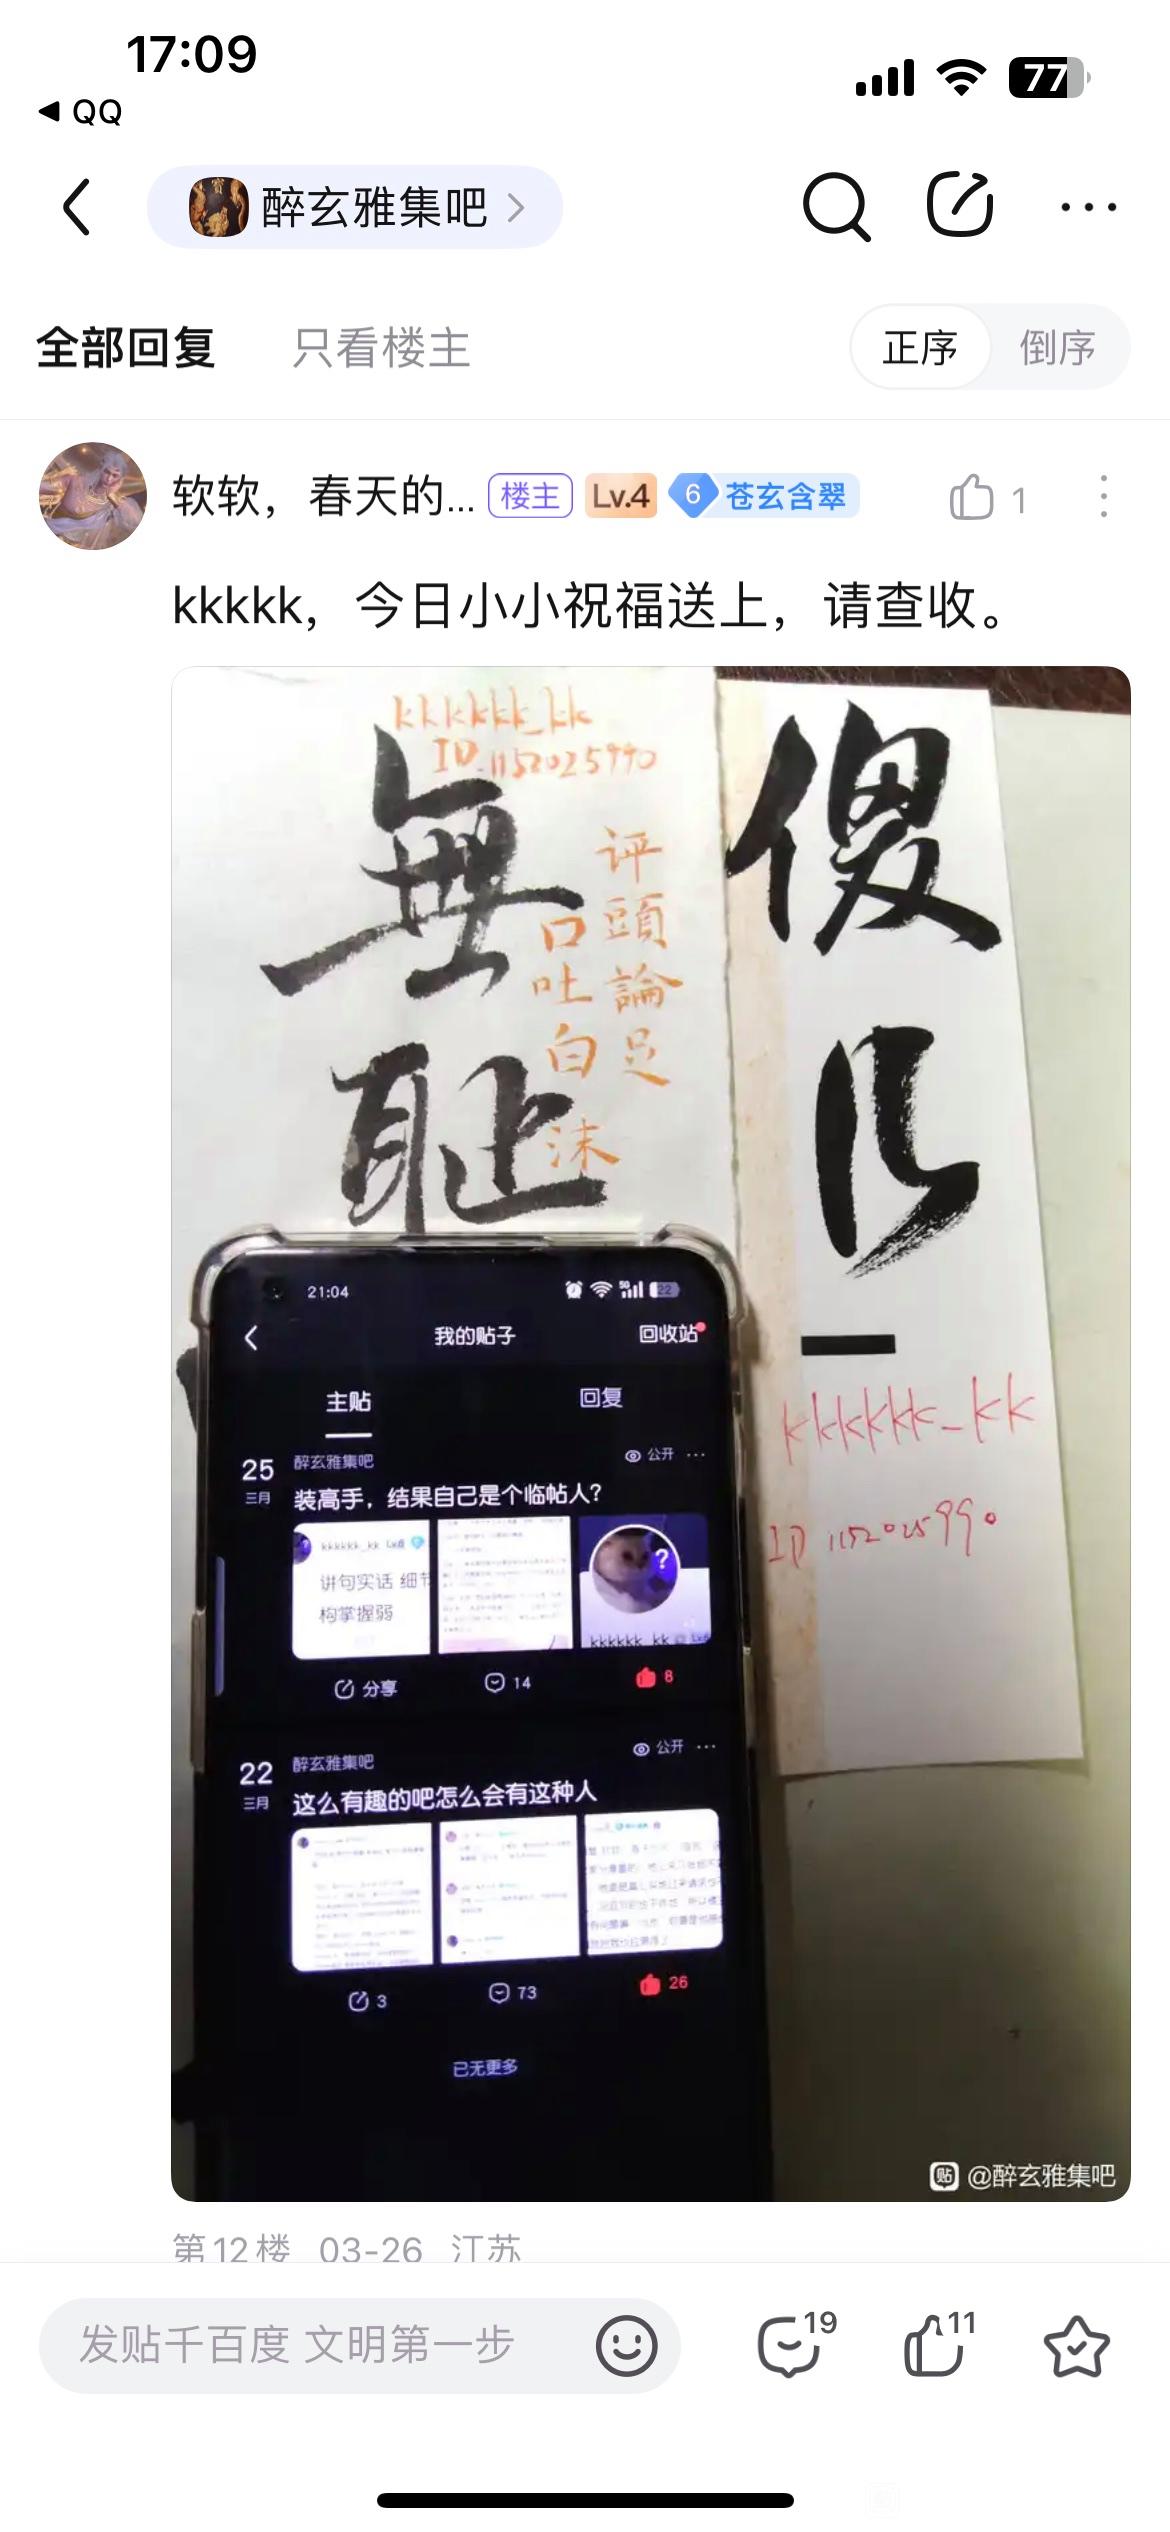 17:09
QQ
77
醉玄雅集吧
全部回复 只看楼主 正序 倒序
软软，春天的... 楼主 Lv.4 6 苍玄含翠 1
kkkkk，今日小小祝福送上，请查收。
kkkkkk_kk
ID.1152025990
無
耻
评頭論足
口吐白沫
傻
kkkkkk_kk
ID 1152025990
21:04
22
我的贴子 回收站
主贴 回复
25 三月
醉玄雅集吧 公开
装高手，结果自己是个临帖人？
kkkkkk_kk
讲句实话 细节
构掌握弱
?
kkkkkk_kk
分享 14 8
22 三月
醉玄雅集吧 公开
这么有趣的吧怎么会有这种人
3 73 26
已无更多
贴 @醉玄雅集吧
第12楼 03-26 江苏
发贴千百度 文明第一步
19
11